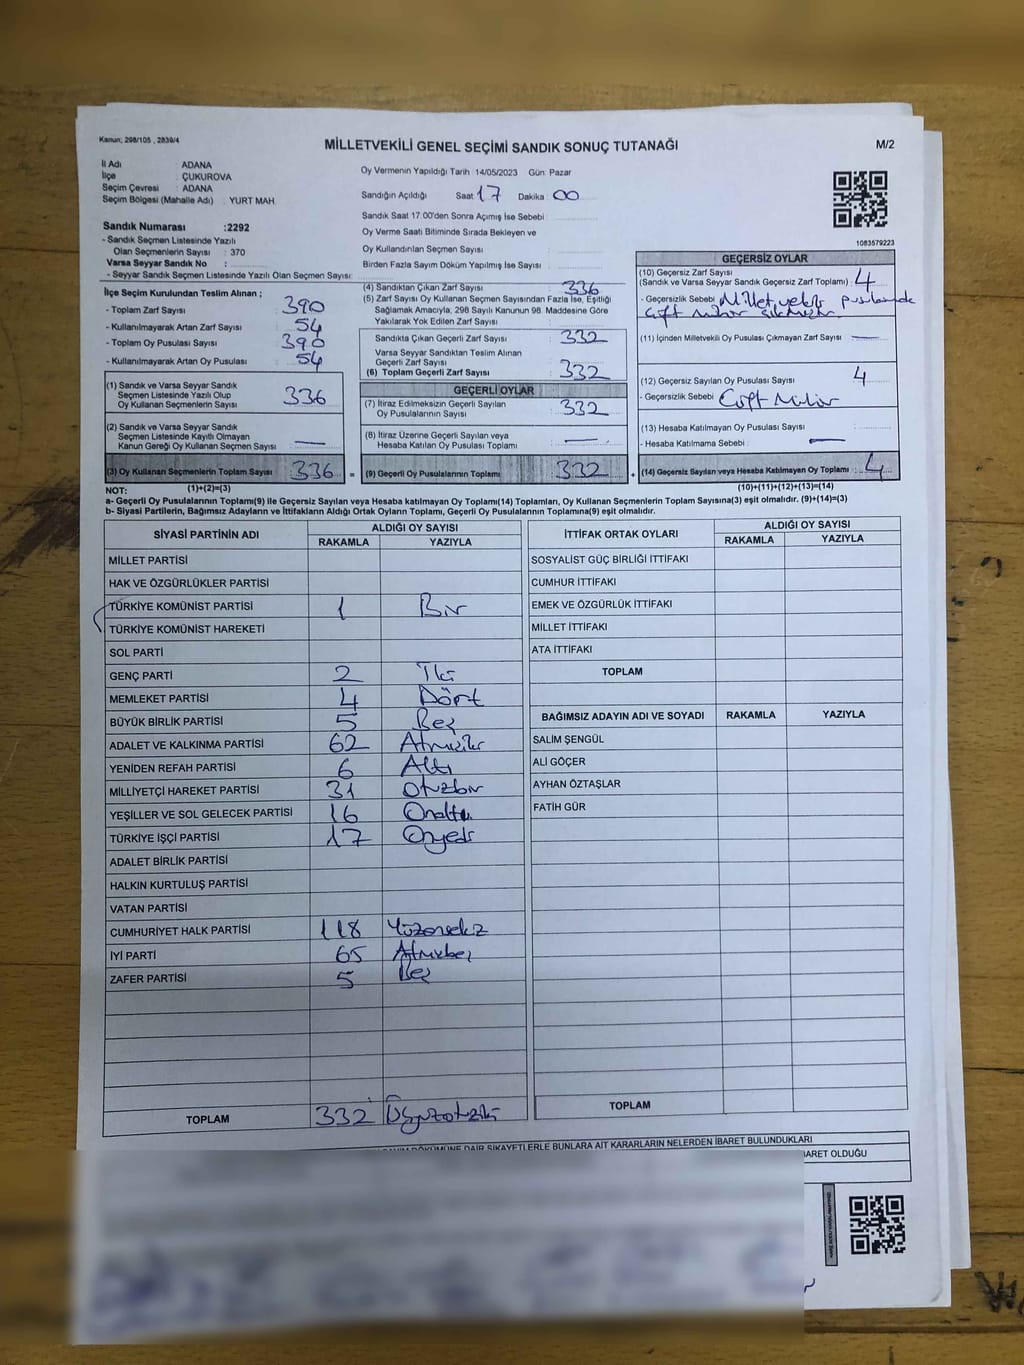 Kanun; 298/105 , 2839/4
MİLLETVEKİLİ GENEL SEÇİMİ SANDIK SONUÇ TUTANAĞI
M/2
İl Adı : ADANA
İlçe : ÇUKUROVA
Seçim Çevresi : ADANA
Seçim Bölgesi (Mahalle Adı) : YURT MAH.
Sandık Numarası :2292
- Sandık Seçmen Listesinde Yazılı
Olan Seçmenlerin Sayısı : 370
Varsa Seyyar Sandık No :
- Seyyar Sandık Seçmen Listesinde Yazılı Olan Seçmen Sayısı:
Oy Vermenin Yapıldığı Tarih 14/05/2023 Gün Pazar
Sandığın Açıldığı Saat 17 Dakika : 00
Sandık Saat 17.00'den Sonra Açımış İse Sebebi :
Oy Verme Saati Bitiminde Sırada Bekleyen ve
Oy Kullandırılan Seçmen Sayısı :
Birden Fazla Sayım Döküm Yapılmış İse Sayısı :
1083579223
İlçe Seçim Kurulundan Teslim Alınan ;
- Toplam Zarf Sayısı : 390
- Kullanılmayarak Artan Zarf Sayısı : 54
- Toplam Oy Pusulası Sayısı : 390
- Kullanılmayarak Artan Oy Pusulası : 54
(1) Sandık ve Varsa Seyyar Sandık
Seçmen Listesinde Yazılı Olup
Oy Kullanan Seçmenlerin Sayısı : 336
(2) Sandık ve Varsa Seyyar Sandık
Seçmen Listesinde Kayıtlı Olmayan
Kanun Gereği Oy Kullanan Seçmen Sayısı : —
(3) Oy Kullanan Seçmenlerin Toplam Sayısı : 336 =
(4) Sandıktan Çıkan Zarf Sayısı : 336
(5) Zarf Sayısı Oy Kullanan Seçmen Sayısından Fazla İse, Eşitliği
Sağlamak Amacıyla, 298 Sayılı Kanunun 98. Maddesine Göre
Yakılarak Yok Edilen Zarf Sayısı :
Sandıkta Çıkan Geçerli Zarf Sayısı : 332
Varsa Seyyar Sandıktan Teslim Alınan
Geçerli Zarf Sayısı :
(6) Toplam Geçerli Zarf Sayısı : 332
GEÇERLİ OYLAR
(7) İtiraz Edilmeksizin Geçerli Sayılan
Oy Pusulalarının Sayısı : 332
(8) İtiraz Üzerine Geçerli Sayılan veya
Hesaba Katılan Oy Pusulası Toplamı : —
(9) Geçerli Oy Pusulalarının Toplamı : 332 +
GEÇERSİZ OYLAR
(10) Geçersiz Zarf Sayısı
(Sandık ve Varsa Seyyar Sandık Geçersiz Zarf Toplamı) : 4
- Geçersizlik Sebebi : Milletvekili pusulasında
çift mühür çıkmıştır.
(11) İçinden Milletvekili Oy Pusulası Çıkmayan Zarf Sayısı : —
(12) Geçersiz Sayılan Oy Pusulası Sayısı : 4
- Geçersizlik Sebebi : Çift Mühür
(13) Hesaba Katılmayan Oy Pusulası Sayısı :
- Hesaba Katılmama Sebebi : —
(14) Geçersiz Sayılan veya Hesaba Katılmayan Oy Toplamı : 4
NOT: (1)+(2)=(3)
(10)+(11)+(12)+(13)=(14)
a- Geçerli Oy Pusulalarının Toplamı(9) ile Geçersiz Sayılan veya Hesaba katılmayan Oy Toplamı(14) Toplamları, Oy Kullanan Seçmenlerin Toplam Sayısına(3) eşit olmalıdır. (9)+(14)=(3)
b- Siyasi Partilerin, Bağımsız Adayların ve İttifakların Aldığı Ortak Oyların Toplamı, Geçerli Oy Pusulalarının Toplamına(9) eşit olmalıdır.
SİYASİ PARTİNİN ADI ALDIĞI OY SAYISI
RAKAMLA YAZIYLA
MİLLET PARTİSİ
HAK VE ÖZGÜRLÜKLER PARTİSİ
TÜRKİYE KOMÜNİST PARTİSİ 1 Bir
TÜRKİYE KOMÜNİST HAREKETİ
SOL PARTİ
GENÇ PARTİ 2 İki
MEMLEKET PARTİSİ 4 Dört
BÜYÜK BİRLİK PARTİSİ 5 Beş
ADALET VE KALKINMA PARTİSİ 62 Atmışiki
YENİDEN REFAH PARTİSİ 6 Altı
MİLLİYETÇİ HAREKET PARTİSİ 31 Otuzbir
YEŞİLLER VE SOL GELECEK PARTİSİ 16 Onaltı
TÜRKİYE İŞÇİ PARTİSİ 17 Onyedi
ADALET BİRLİK PARTİSİ
HALKIN KURTULUŞ PARTİSİ
VATAN PARTİSİ
CUMHURİYET HALK PARTİSİ 118 Yüzonsekiz
İYİ PARTİ 65 Atmışbeş
ZAFER PARTİSİ 5 Beş
TOPLAM 332 Üçyüzotuziki
İTTİFAK ORTAK OYLARI ALDIĞI OY SAYISI
RAKAMLA YAZIYLA
SOSYALİST GÜÇ BİRLİĞİ İTTİFAKI
CUMHUR İTTİFAKI
EMEK VE ÖZGÜRLÜK İTTİFAKI
MİLLET İTTİFAKI
ATA İTTİFAKI
TOPLAM
BAĞIMSIZ ADAYIN ADI VE SOYADI RAKAMLA YAZIYLA
SALİM ŞENGÜL
ALİ GÖÇER
AYHAN ÖZTAŞLAR
FATİH GÜR
TOPLAM
DÖKÜMÜNE DAİR ŞİKAYETLERLE BUNLARA AİT KARARLARIN NELERDEN İBARET BULUNDUKLARI
İBARET OLDUĞU